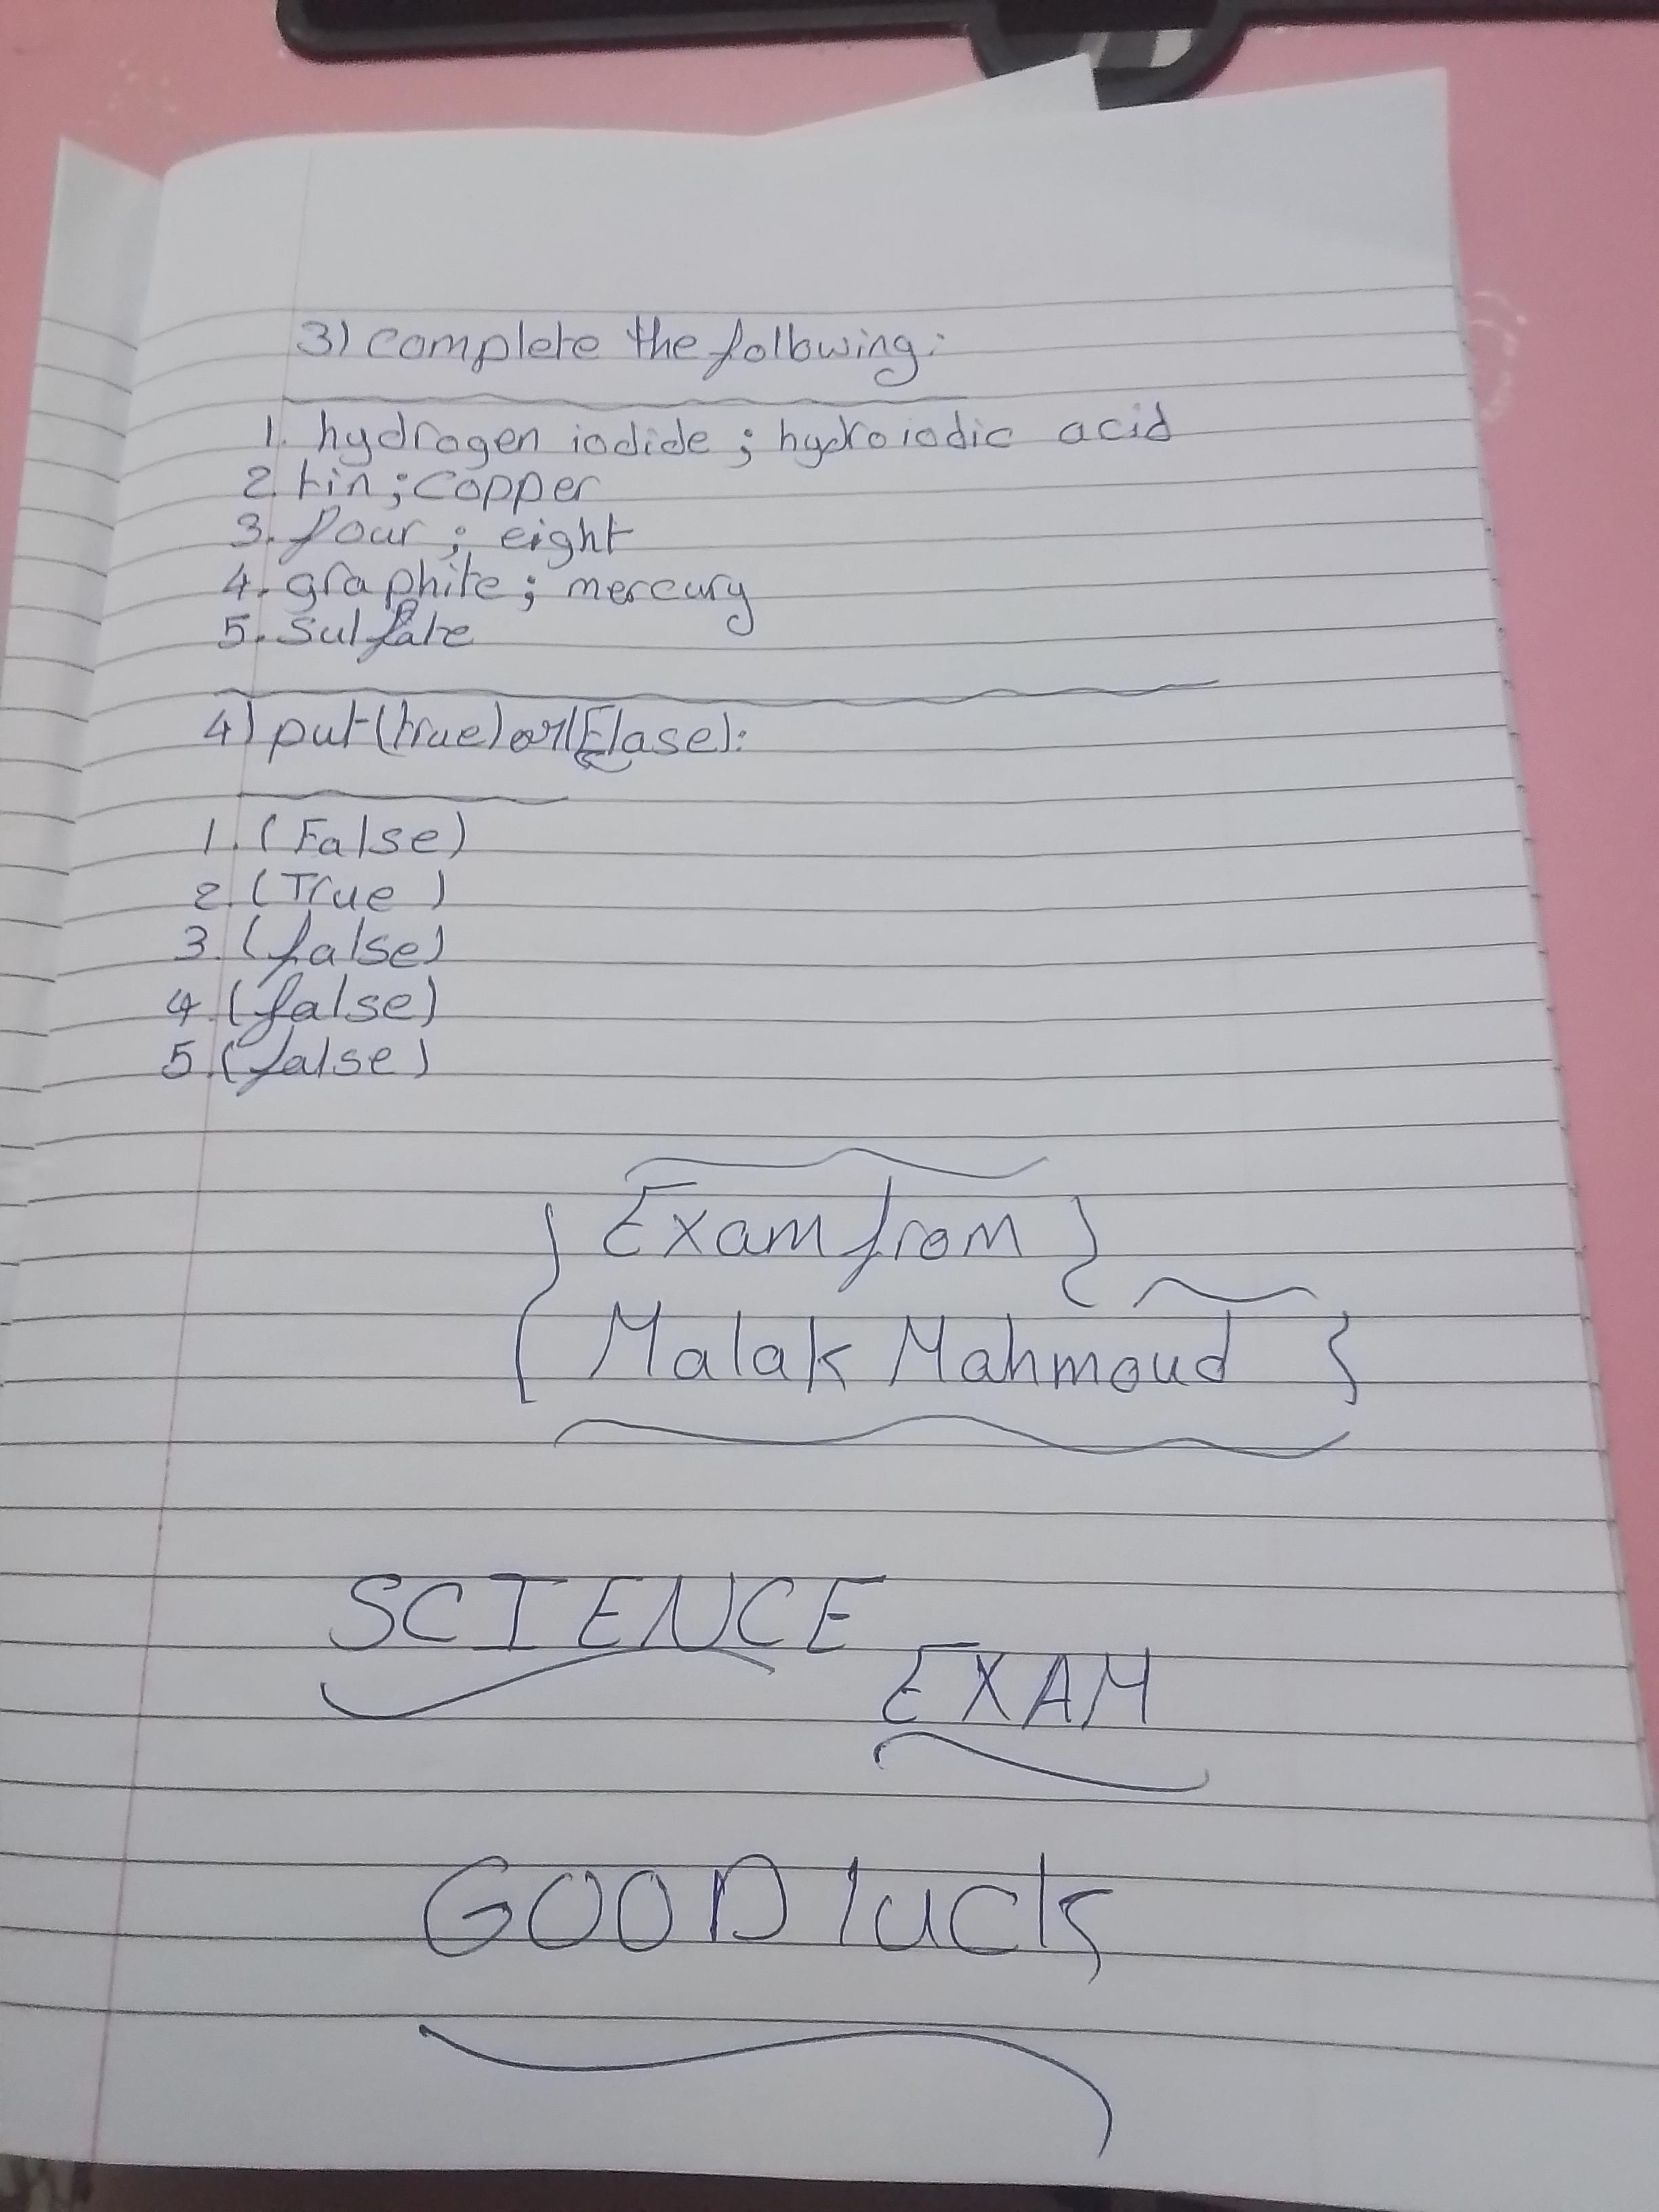 3) complete the following:
1. hydrogen iodide ; hydroiodic acid
2. tin ; copper
3. four ; eight
4. graphite ; mercury
5. Sulfate
4) put (true) or (Flase):
1. (False)
2. (True)
3. (false)
4. (false)
5. (false)
Exam from
Malak Mahmoud
SCIENCE
EXAM
GOOD luck